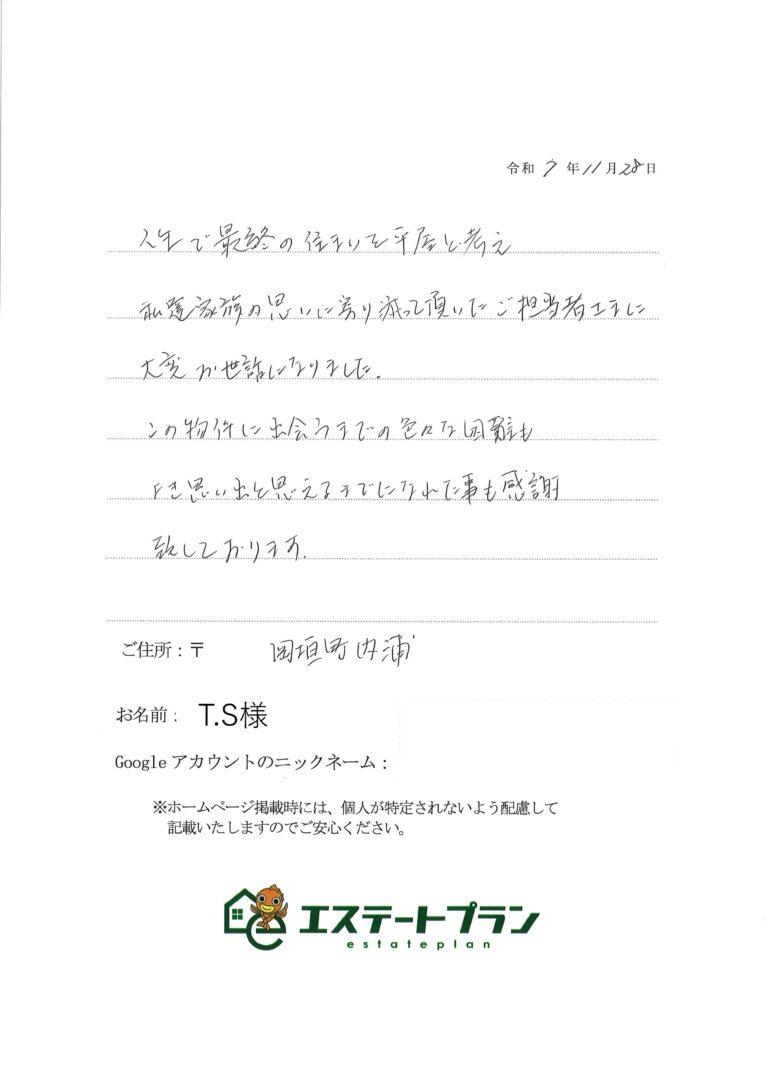 令和 7 年 11 月 28 日
人生で最終の住まいを平屋と考え
私達家族の思いに寄り添って頂いたご担当者さまに
大変お世話になりました。
この物件に出会うまでの色々な困難も
よき思い出と思えるまでになれた事も感謝
致しております。
ご住所：〒 岡垣町内浦
お名前： T.S様
Google アカウントのニックネーム：
※ホームページ掲載時には、個人が特定されないよう配慮して
記載いたしますのでご安心ください。
エステートプラン
estateplan